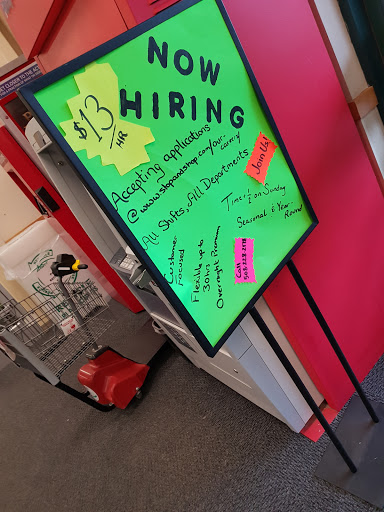 GET CLOSER TO THE
NOW
HIRING
$13
HR
Accepting applications
@ www.stopandshop.com/our-
All Shifts, All Departments
Join Us!
Time & 1/2 on Sunday
Seasonal & Year-
Round
Customer
Focused
Flexible up to
30 hrs
Overnight Premium
Call